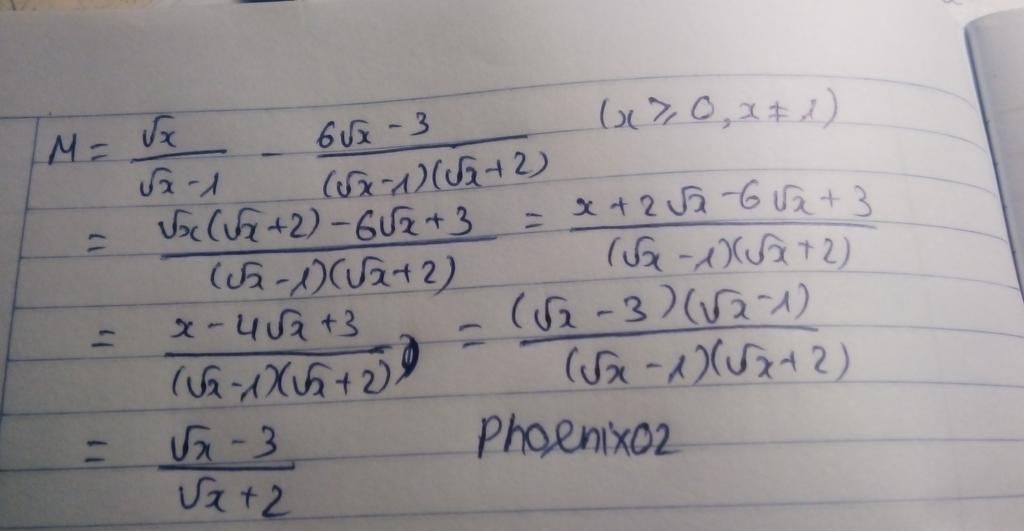 M = √x/(√x - 1) - (6√x - 3)/((√x - 1)(√x + 2)) (x ≥ 0, x ≠ 1)
= (√x(√x + 2) - 6√x + 3)/((√x - 1)(√x + 2)) = (x + 2√x - 6√x + 3)/((√x - 1)(√x + 2))
= (x - 4√x + 3)/((√x - 1)(√x + 2)) = ((√x - 3)(√x - 1))/((√x - 1)(√x + 2))
= (√x - 3)/(√x + 2) Phoenix02